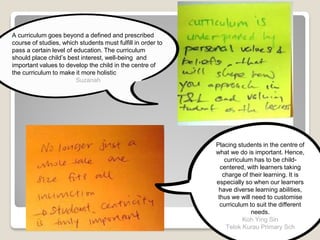 A curriculum goes beyond a defined and prescribed
course of studies, which students must fulfill in order to
pass a certain level of education. The curriculum
should place child's best interest, well-being and
important values to develop the child in the centre of
the curriculum to make it more holistic
Suzanah
curriculum is
underpinned by
personal values &
beliefs - that
will shape how
you approach in
T&L and valuing
student as the
No longer just a
whole sale one
size fits all
instruction
→ Student centricity
is truly important
Placing students in the centre of
what we do is important. Hence,
curriculum has to be child-
centered, with learners taking
charge of their learning. It is
especially so when our learners
have diverse learning abilities,
thus we will need to customise
curriculum to suit the different
needs.
Koh Ying Sin
Telok Kurau Primary Sch